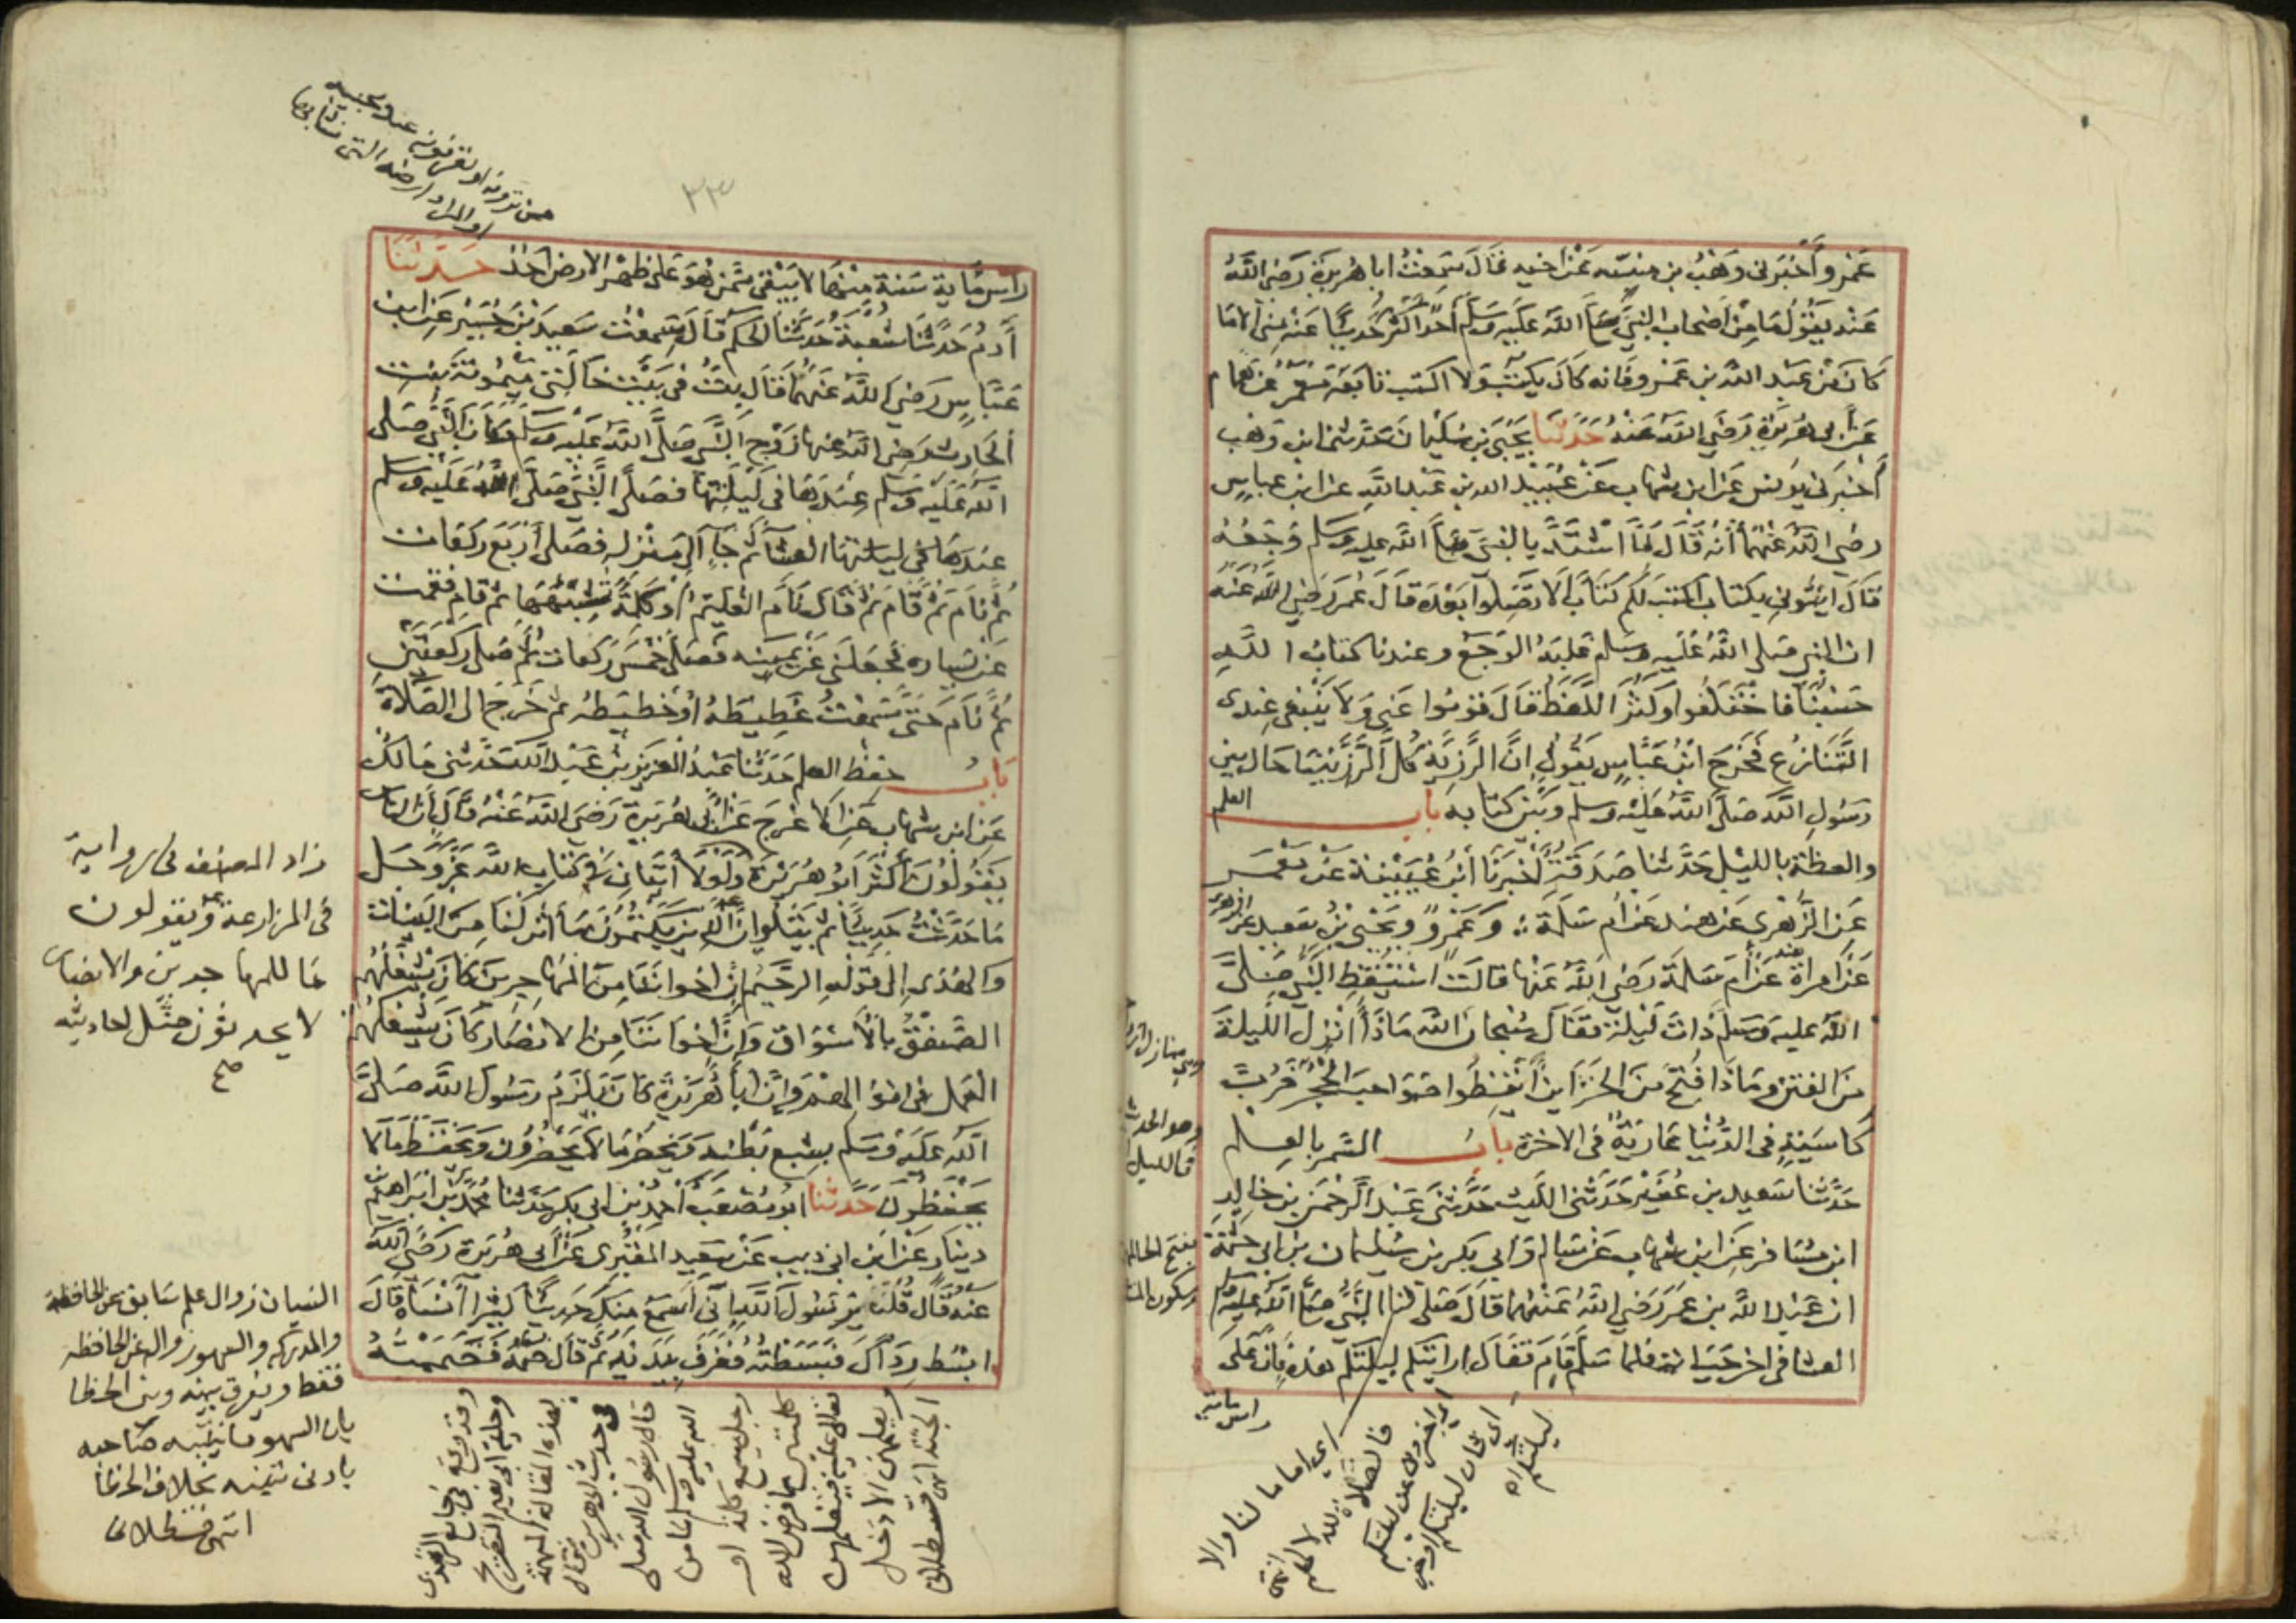 عَمْرو أَخْبَرَني وَهْبُ بن منبّه عَنْ أخيه قَالَ سَمِعْتُ ابا هُرَيرَةَ رَضِيَ اللَّهُ
عَنْه يَقُولُ مَا مِنْ أَصْحَابِ النَّبِيِّ صَلَّى اللَّه عَلَيْهِ وَسَلَّم أَحَدٌ أَكْثَرُ حَدِيثًا عَنْهُ مِنِّي الا مَا
كَانَ مِنْ عَبْدِ اللَّه بن عَمْرو فَانه كَانَ يَكْتُبُ وَلا اكتب تَابَعَهُ مَعْمَرٌ عَنْ هَمَام
عَنْ أَبى هُرَيْرَةَ رَضِيَ اللَّهُ عَنْهُ حَدَّثَنَا يَحْيَى بن سُلَيْمانَ حَدّثنى ابن وَهْب
أَخْبَرَنِي يُونُس عَنِ ابن شِهَاب عَنْ عُبَيْدِ الله بن عَبْدِ اللَّهِ عَنِ ابن عبّاسٍ
رضي اللَّه عَنْهُمَا أَنَّهُ قَالَ لَمَّا اشْتَدَّ بِالنَّبِيِّ صَلَّى اللَّه عليه وسَلم وَجَعُهُ
قَالَ ايتُونِي بكتاب اكتب لَكُمْ كِتَابًا لَا تَضِلُّوا بَعْدَهُ قَالَ عُمَرُ رَضِيَ اللَّهُ عَنْهُ
ان النبي صَلى اللَّهُ عَلَيْهِ وسَلم غَلَبَهُ الْوَجَعُ وعندنا كتابُ اللَّهِ
حَسْبُنَا فَاخْتَلَفُوا وَكَثُرَ اللَّغَطُ قَالَ قُومُوا عَنِّي وَلَا يَنْبَغِي عِنْدِى
التَّنَازُع فَخَرَجَ ابْنُ عَبَّاسٍ يَقُولُ إِنَّ الرَّزِيَّةَ كُلَّ الرَّزِيَّةِ مَا حَالَ بين
رَسُولِ اللَّه صَلَّى اللَّهُ عَلَيْه وسلم وَبَيْنَ كِتَابِهِ بَاب العلم
والعظة بالليل حَدَّثنا صَدَقَةُ أَخْبَرَنَا ابْنُ عُيَيْنَةَ عَنْ مَعْمَر
عَنِ الزُّهْرِى عَن هِند عَن أُم سَلَمَةَ وَعَمْرو وَيَحْيَى بْنُ سَعِيد عن الزهرى
عَنِ امراة هند عَنْ أُمّ سَلَمَةَ رَضِيَ اللَّهُ عَنْهَا قَالَتْ اسْتَيْقَظَ النَّبِي صَلَّى
اللَّهُ عليه وسَلم ذَاتَ لَيْلَةٍ فَقَالَ سُبْحَانَ اللَّهِ مَاذَا أُنْزِلَ اللَّيْلَةَ
مِنَ الفتن وَمَاذَا فُتِحَ مِنَ الخَزَاين أَيْقِظُوا صَوَاحِبَ الْحُجَرِ فَرُبَّ
كَاسِيَةٍ فِى الدُّنْيَا عَارِيَةٌ فى الاخرة بَابُ السَّمَر بالعِلم
حَدَّثَنَا سَعِيد بن عُفَيْر حَدَّثَنِى اللَّيث حَدَّثَنِي عَبْدُ الرَّحْمَن بن خالِد
ابن مُسَافِر عَنِ ابن شِهَاب عَنْ سَالِم وَأبي بَكر بن سُليمان بن ابى حَثْمَةَ
ان عَبْدَ اللَّه بن عُمَرَ رَضِيَ اللَّهُ عَنْهُمَا قَالَ صَلَى لَنَا النَّبِيُّ صَلَّى اللَّهُ عَلَيْهِ وَسَلم
العشا فى اخر حَيَاته فلما سَلَّمَ قَامَ فَقَالَ ارايْتَكم ليلتكم هذه فان عَلى
راس ماية
اي اماما لنا والا
فالصلاة لله لا لهم
انتهى
وهو الحديث
بالليل
بفتح الحا المهملة
وسكون المثلثة
٣٣
رَاس مِايَةِ سَنَةٍ مِنْهَا لا يَبْقَى مِمَّنْ هُوَ عَلَى ظَهْرِ الارض أَحَد حَدَّثَنَا
آدَمُ حَدَّثَنَا شُعْبَةُ حَدَّثَنَا الحَكَم قَالَ سَمِعْتُ سَعِيدَ بْنَ جُبَيْر عَنِ ابن
عَبَّاسٍ رَضِيَ اللَّهُ عَنْهُمَا قَالَ بِتُّ فِى بَيْتِ خَالَتِي مَيْمُونَةَ بِنْت
الْحَارِث رَضِيَ اللَّه عنها زَوْجِ النَّبِيِّ صَلَّى اللَّهُ عَلَيْهِ وَسَلَّمَ وَكَانَ النَّبِي صَلى
اللَّه عَلَيْه وَسَلم عِنْدَهَا فى لَيْلَتِهَا فَصَلَّى النَّبِيُّ صَلَّى اللَّهُ عَلَيْهِ وَسَلم
عِنْدَهَا فى ليلتها العشآ ثُمَّ جَآ إِلَى مَنْزِلِهِ فَصَلَّى أَرْبَعَ رَكَعَات
ثُمَّ نَامَ ثُمَّ قَامَ ثُمَّ قَالَ نَامَ الغليم أَوْ كَلِمَةً تُشْبِهُهَا ثُمَّ قَامَ فَقُمْت
عَنْ يَسَاره فَجَعَلَنِي عَنْ يَمِينِهِ فَصَلَّى خَمْسَ رَكَعَات ثُمَّ صَلَى رَكْعَتَيْنِ
ثُمَّ نَامَ حَتَّى سَمِعْتُ غَطِيطَهُ أَوْ خَطِيطَهُ ثم خَرَجَ الى الصَّلَاة
بَابُ حفظ العلم حَدَّثَنَا عَبْدُ الْعَزِيزِ بْنُ عَبْدِ اللَّه حَدَّثَنِي مَالك
عَنِ ابن شِهَاب عَنِ الاعْرَجِ عَنْ أَبِى هُرَيْرَةَ رَضِيَ اللَّهُ عَنْهُ قَالَ إِنَّ الناس
يَقُولُونَ أَكْثَرَ ابُو هُرَيْرَةَ وَلَوْلَا آيَتَانِ فِي كِتَابِ اللَّهِ عَزَّ وَجَل
مَا حَدَّثْتُ حَدِيثًا ثُمَّ يَتْلُو ان الَّذِينَ يَكْتُمُونَ مَا أَنْزَلْنَا مِنَ الْبَيِّنَات
وَالهُدَى إِلَى قَوْلِهِ الرَّحِيمُ إِنَّ اخوانَنَا مِنَ الْمُهَاجِرِينَ كَانَ يَشْغَلُهُم
الصَّفْقُ بِالْأَسْوَاقِ وَإِنَّ إِخْوَانَنَا مِنَ الانصَار كَانَ يَشْغَلُهُمُ
العَمَل فى اموالهم وَإِنَّ أَبَا هُرَيْرَةَ كَانَ يَلْزَمُ رَسُولَ اللَّه صَلَّى
اللَّهُ عَلَيْهِ وَسَلم بِشِبَع بَطْنِه وَيَحْضُرُ مَا لَا يَحْضُرُون وَيَحْفَظُ مَا لَا
يَحْفَظُونَ حَدَّثَنَا ابُو مُصْعَب أَحْمَدُ بْنُ ابى بَكر حَدَّثَنَا مُحَمَّدُ بْنُ ابْرَاهِيم بن
دِينَار عَنِ ابن ابى ذِيب عَنْ سَعِيد المقْبُرِى عَنْ أَبى هُرَيْرَةَ رَضِيَ اللَّه
عَنه قَالَ قُلْتُ يَا رَسُولَ اللَّهِ إِنِّي اسمَعُ مِنْكَ حَدِيثًا كَثِيرًا أَنْسَاهُ قَالَ
ابْسُط رِدَاكَ فَبَسَطْتُهُ فَغَرَفَ بِيَدَيْهِ ثُمَّ قَالَ ضُمَّهُ فَضَمَمْتُهُ
زاد المصنف فى رواية
فى المزارعة ويقولون
ما للمهاجرين والانصار
لا يحدثون مثل احاديثه
صح
النسيان زوال علم سَابق عن الحافظة
والمدركه والسهو زواله عن الحافظه
فقط ويفرق بينه وبين الخطا
بان السهو ما ينتبه صاحبه
بادنى تنبيه بخلاف الخطا
انتهى قسطلانى
وقد وقع فى
هذه المقالة
فى حديث ابى هريرة
قال رسول الله صلى
الله عليه وسلم ما من
رجل يسمع كلمة او
كلمتين مما فرض الله
تعالى عليه فيتعلمهن
ويعلمهن الا دخل
الجنة انتهى قسطلانى